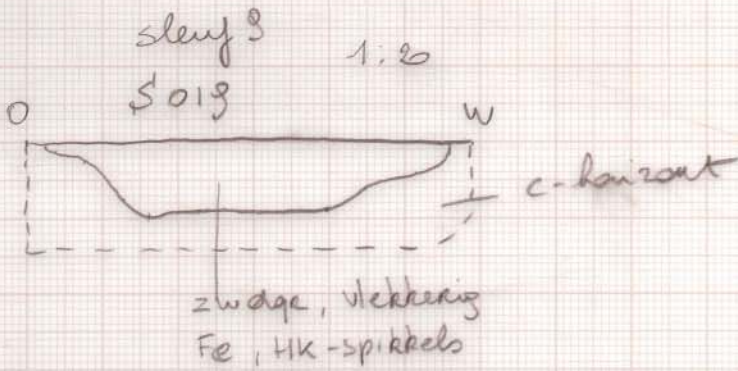 sleuf 9
1:20
S019
O
W
C-horizont
zwdgr, vlekkerig
Fe, HK-spikkels